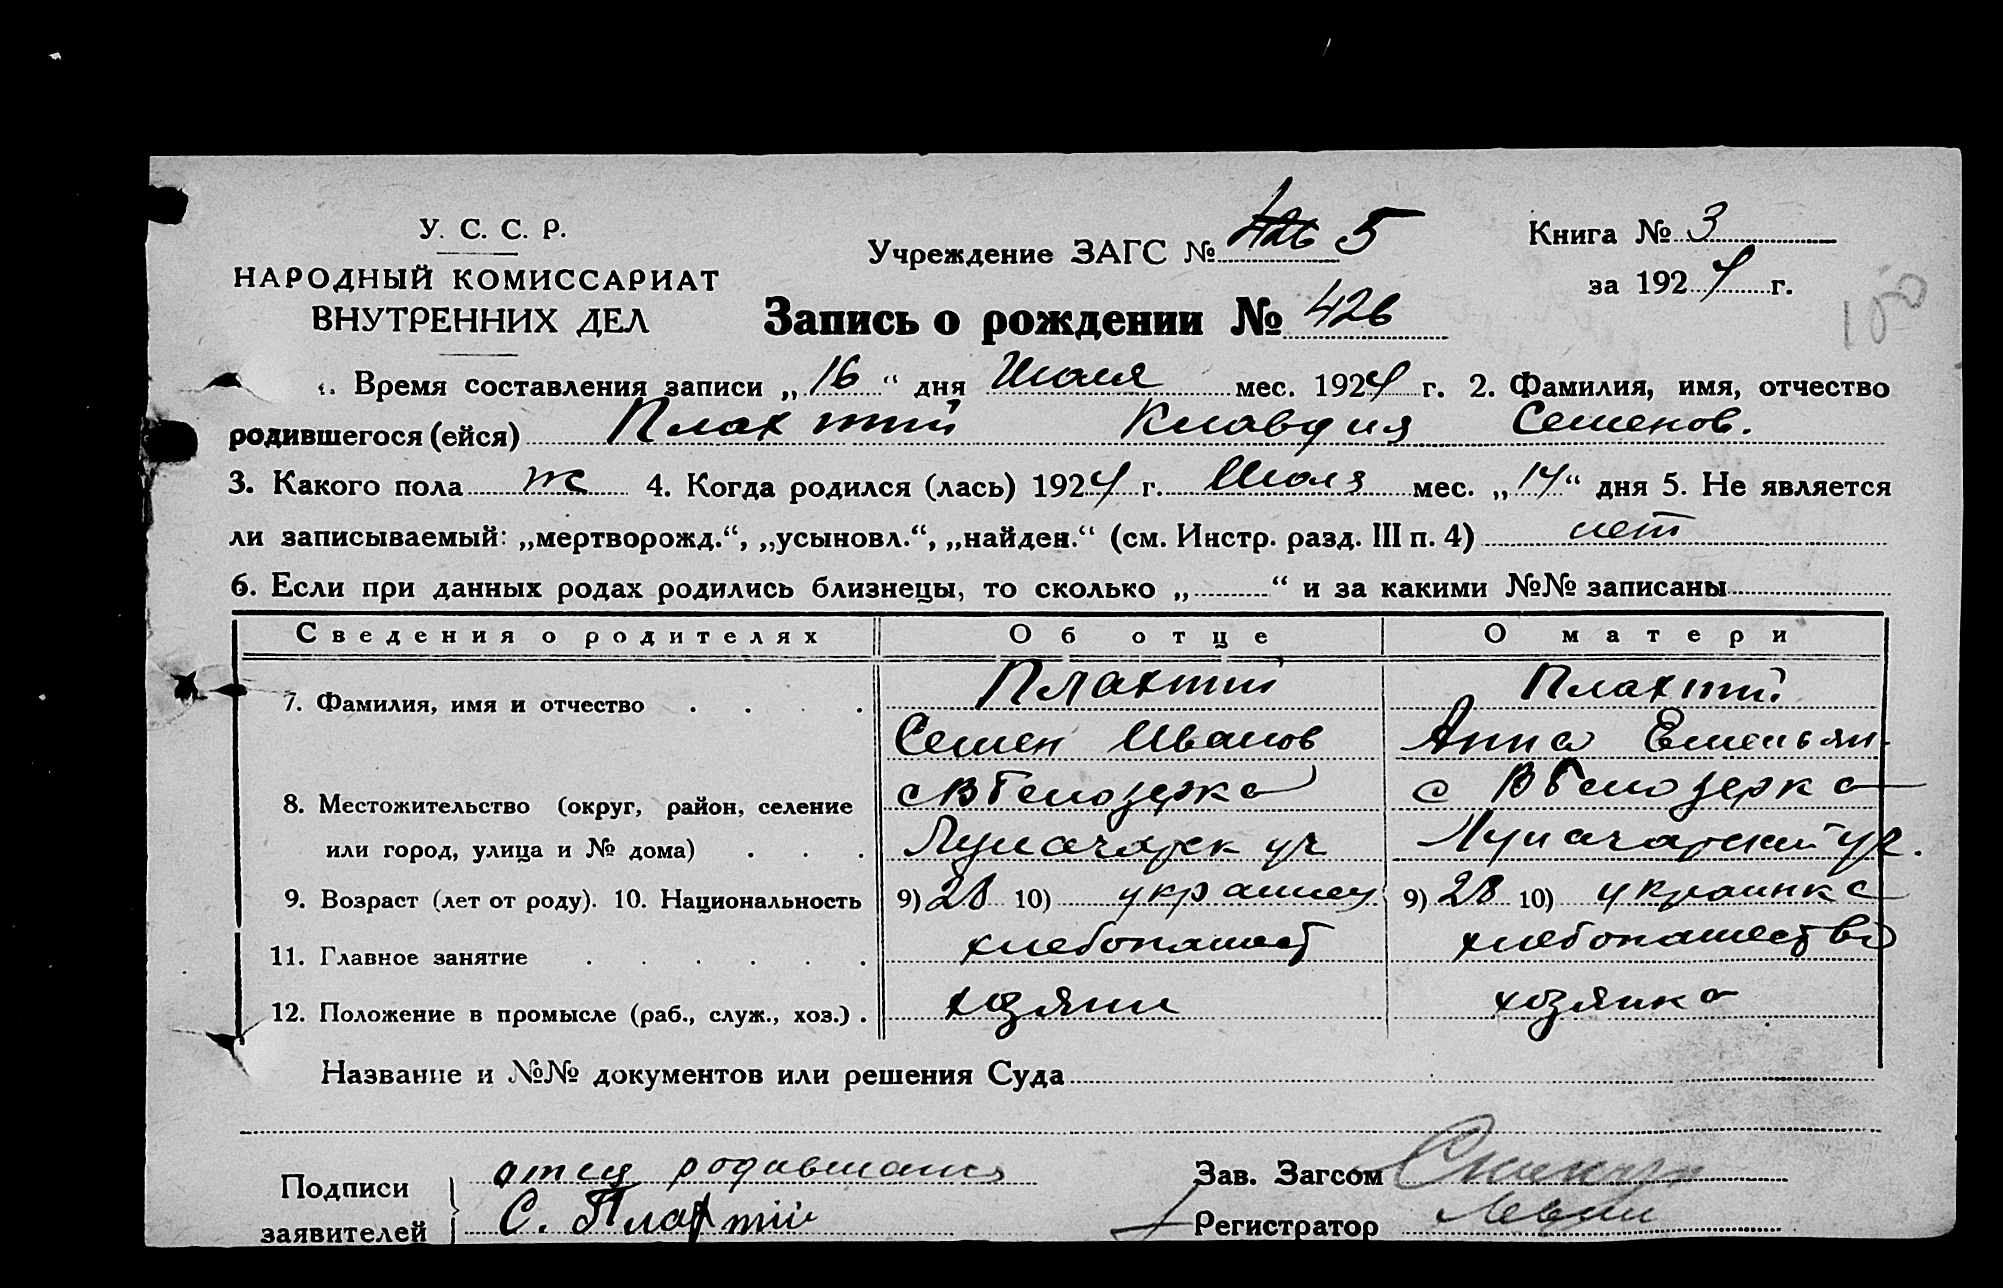 У. С. С. Р.
НАРОДНЫЙ КОМИССАРИАТ
ВНУТРЕННИХ ДЕЛ
Учреждение ЗАГС № 426 5
Книга № 3
за 1924 г.
100
Запись о рождении № 426
1. Время составления записи „16“ дня Июля мес. 1924 г. 2. Фамилия, имя, отчество
родившегося (ейся) Плахтий Клавдия Семенов.
3. Какого пола ж 4. Когда родился (лась) 1924 г. Июля мес. „14“ дня 5. Не является
ли записываемый: „мертворожд.“, „усыновл.“, „найден.“ (см. Инстр. разд. III п. 4) нет
6. Если при данных родах родились близнецы, то сколько „ “ и за какими №№ записаны
Сведения о родителях Об отце О матери
7. Фамилия, имя и отчество Плахтий Плахтий
Семен Иванов Анна Емельян.
8. Местожительство (округ, район, селение с В Белозерка с В Белозерка
или город, улица и № дома) Луначарск ул Луначарский ул.
9. Возраст (лет от роду). 10. Национальность 9) 28 10) украинец 9) 28 10) украинка
11. Главное занятие хлебопашест хлебопашество
12. Положение в промысле (раб., служ., хоз.) хозяин хозяйка
Название и №№ документов или решения Суда
Подписи отец родившаяся
заявителей С. Плахтий
Зав. Загсом
Регистратор Левин